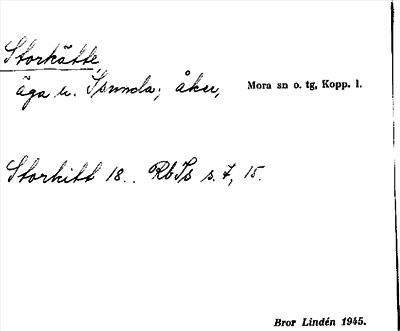 Storkätte,
äga u. Isunda; åker, Mora sn o. tg, Kopp. l.
Storkitt 18.. RbTs s. 7, 15.
Bror Lindén 1945.